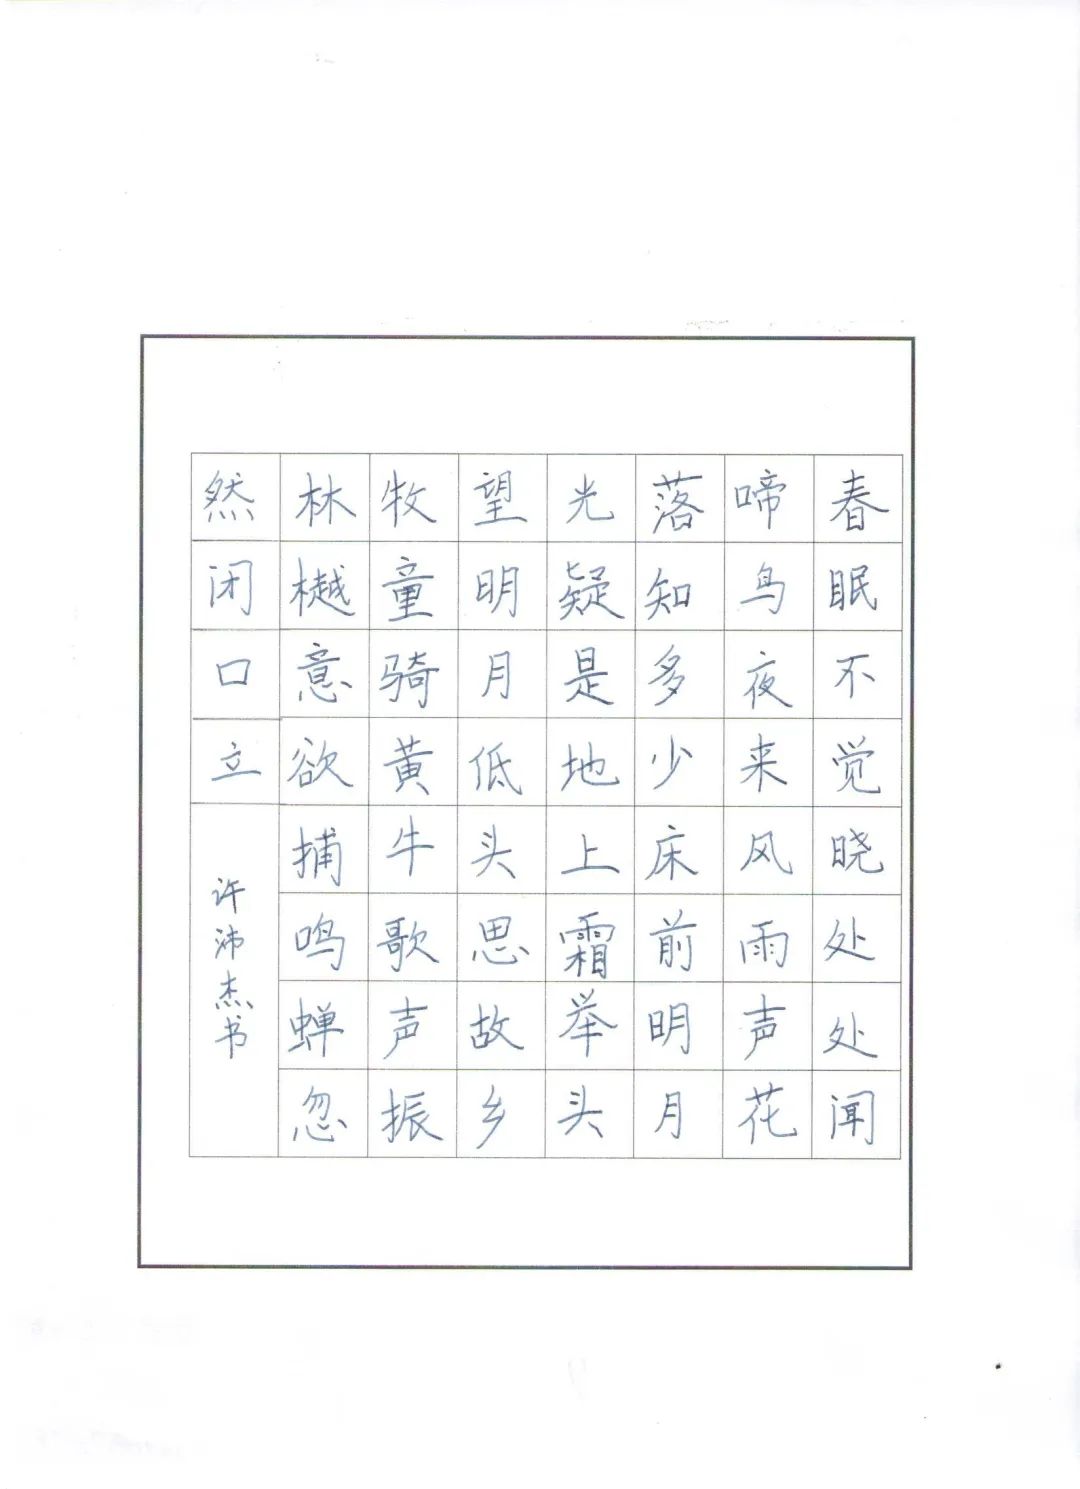 春眠不觉晓处处闻
啼鸟夜来风雨声花
落知多少床前明月
光疑是地上霜举头
望明月低头思故乡
牧童骑黄牛歌声振
林樾意欲捕鸣蝉忽
然闭口立
许沛杰书